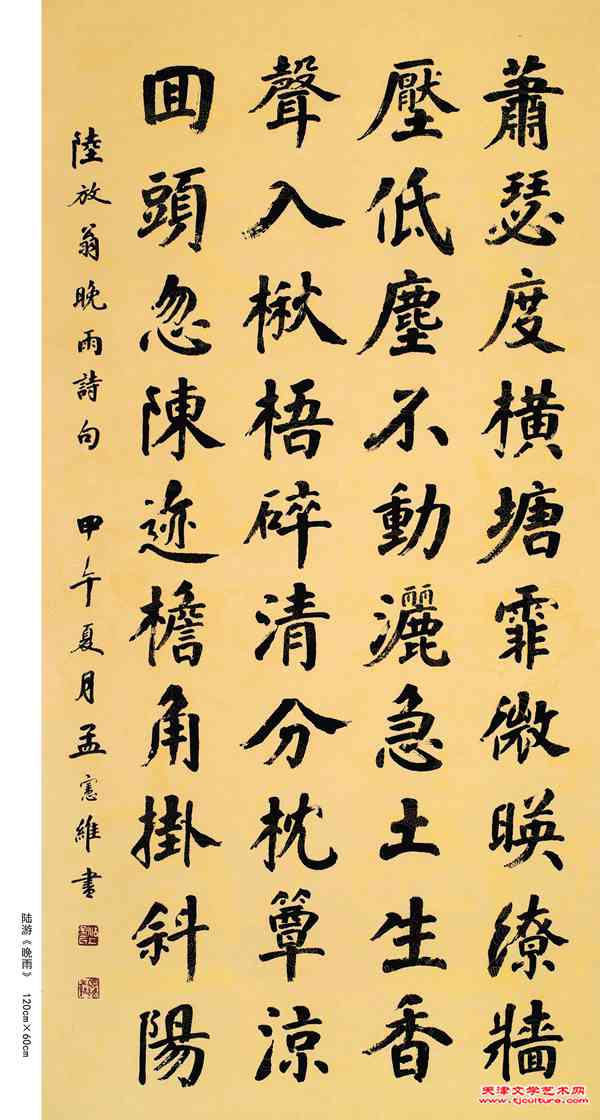 蕭瑟度橫塘霏微暎繚牆
壓低塵不動灑急土生香
聲入楸梧碎清分枕簟涼
回頭忽陳迹檐角掛斜陽
陸放翁晚雨詩句 甲午夏月孟憲維書
陆游《晚雨》 120cm×60cm
天津文学艺术网
www.tjculture.com